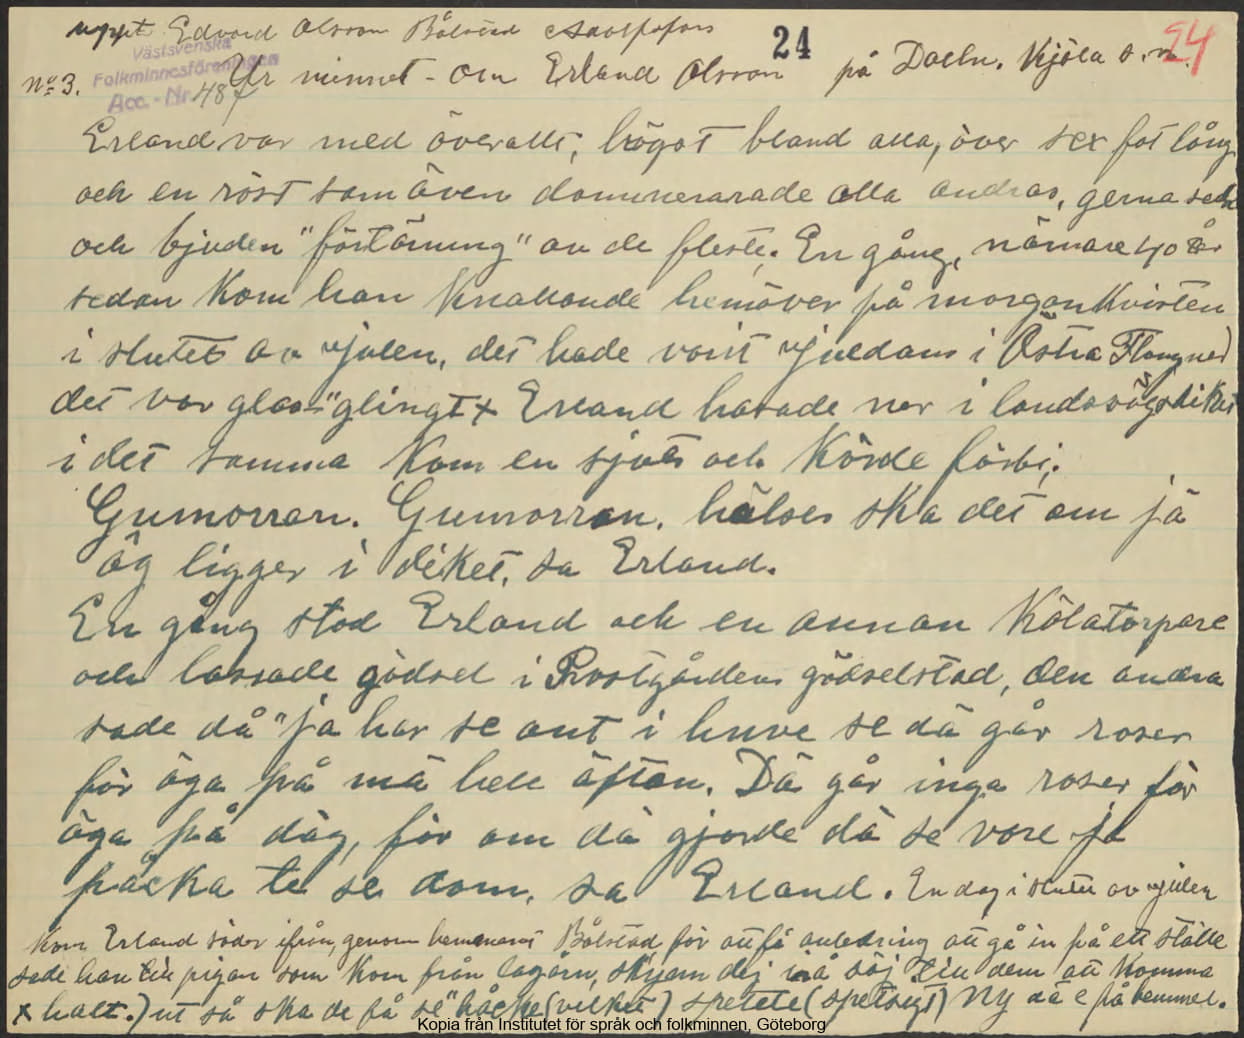 uppt. Edvard Olsson Bålstad Adolfsfors
24
24
Västsvenska
Folkminnesföreningen
Acc.-Nr 487
No 3. Ur minnet - om Erland Olsson på Daeln. Kjöla s.n.
Erland var med överallt, högst bland alla, över sex fot lång
och en röst som även dominerarade alla andras, gerna sedd
och bjuden "förtärning" av de fleste. En gång, närmare 40 år
sedan kom han knallande hemöver på morgonkvisten
i slutet av julen, det hade varit juldans i Östra Flogned
det var glas-"glingt x Erland hasade ner i landsvägsdiket
i det samma kom en sjuts och körde förbi,
Gumorran. Gumorran. hälses ska det om jä
äg ligger i diket, sa Erland.
En gång stod Erland och en annan Kölatorpare
och lassade gödsel i Prostgårdens gödselstad, den andra
sade då "ja har se ont i huve se dä går roser
för öga på mä hele äftan. Dä går inga roser för
öga på däg, för om dä gjorde dä se vore ja
päcka te se dom, sa Erland. En dag i slutet av julen
kom Erland söder ifrån, genom hemmanet Bålstad för att få anledning att gå in på ett ställe
sade han till pigan som kom från lagårn, skjam dej inå söj till dem att komma
x halt.) ut så ska de få se" håcke (vilket) spetete (spetsigt) ny dä e på hemmel.
Kopia från Institutet för språk och folkminnen, Göteborg